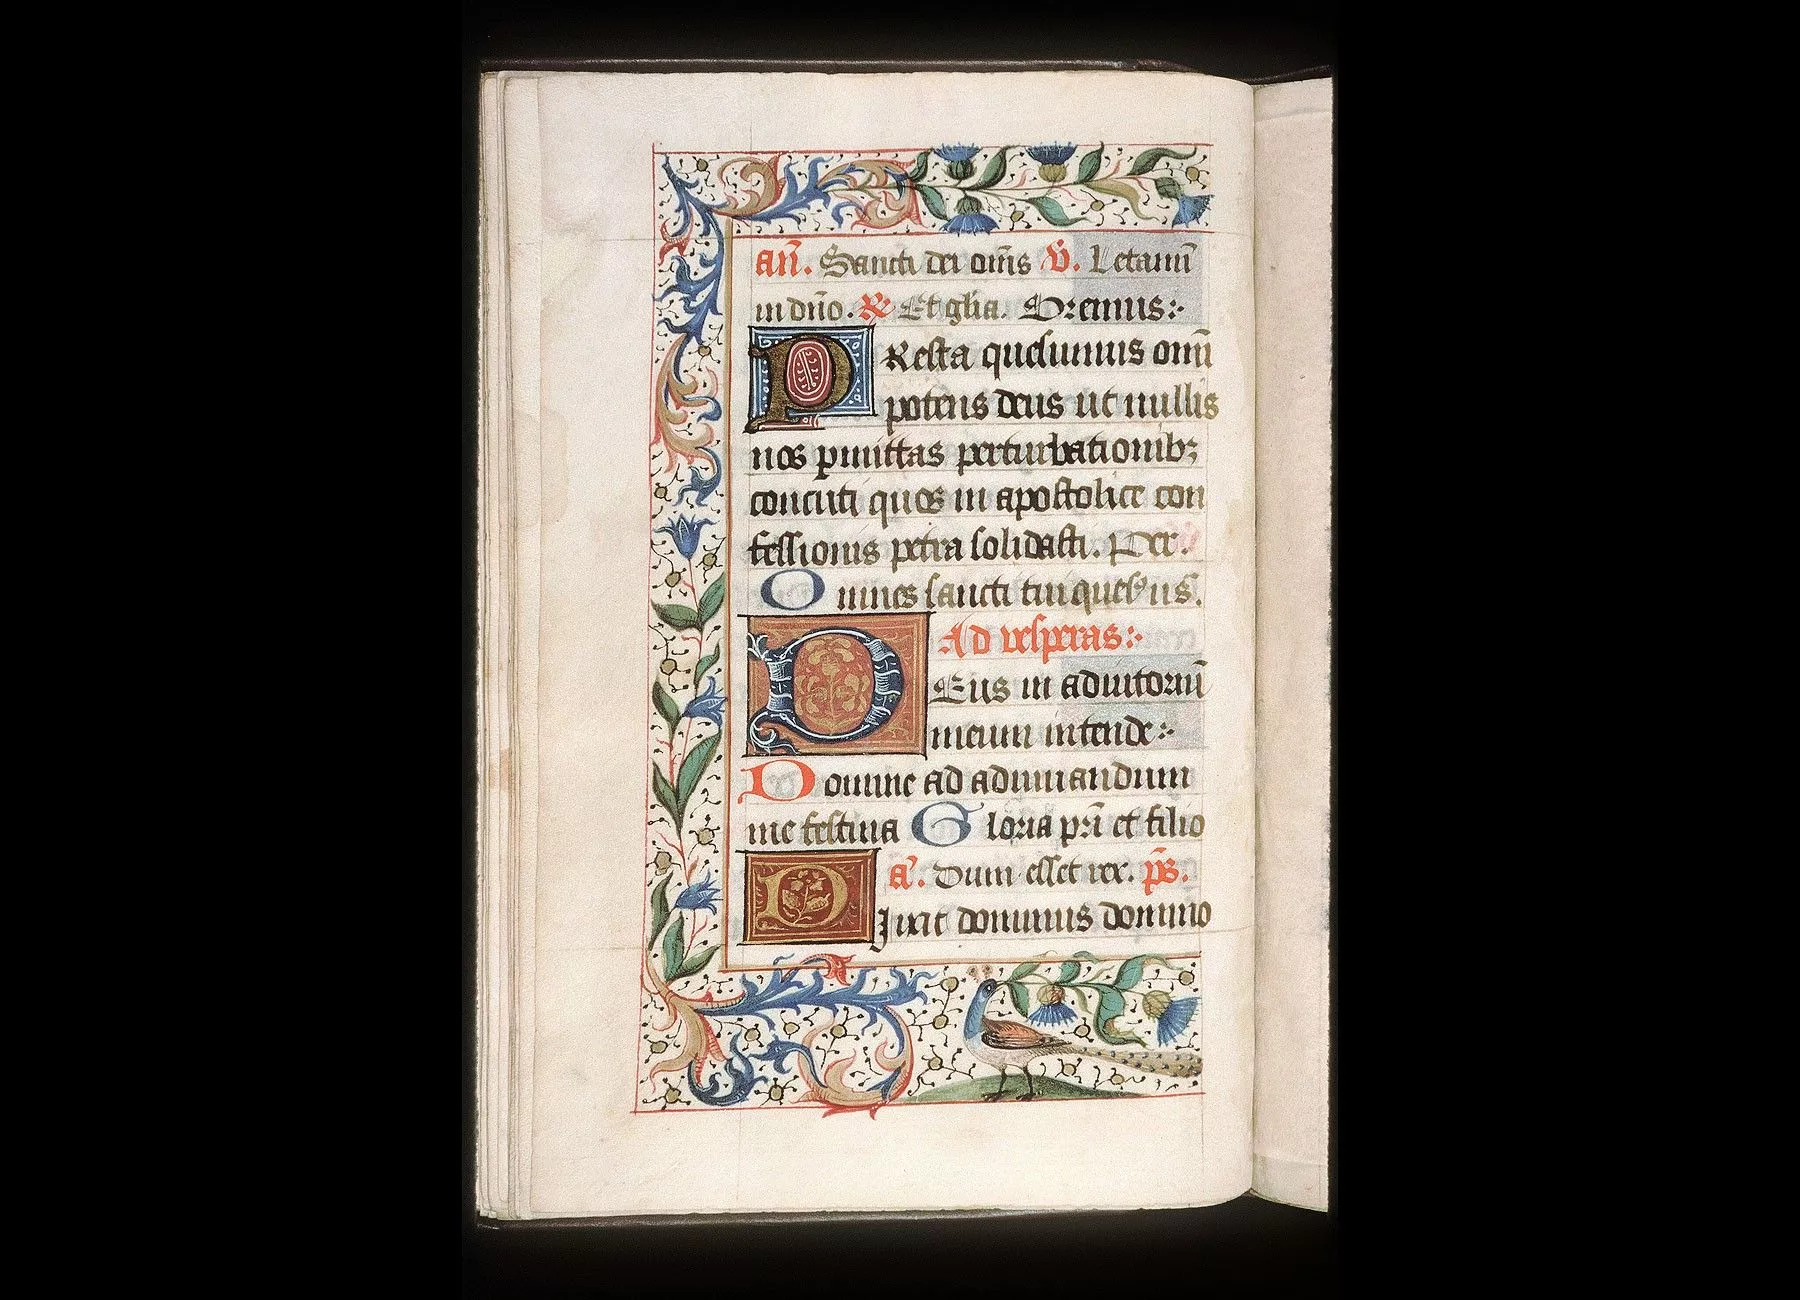 an̄. Sancti dei om̄s v̄. Letamī
in dn̄o. ℟ Et glīa. Oremus:
PResta quesumus omī
potens deus ut nullis
nos ꝑmittas perturbationibꝫ
concuti quos in apostolice con
fessionis petra solidasti. Per.
Omnes sancti tui ques̄ us.
Ad vesperas:
DEus in adiutoriū
meum intende:
Domine ad adiuuandum
me festina Gloria pr̄i et filio
a᷉. Dum esset rex. p̄s.
Dixit dominus domino